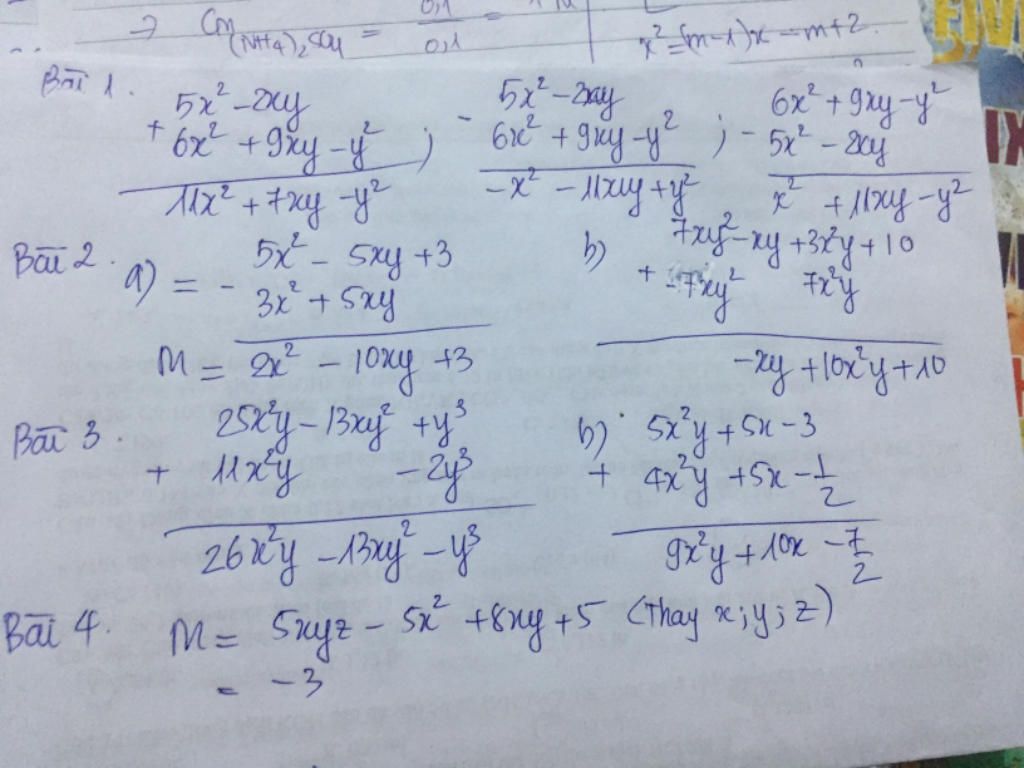 => CM (NH4)2SO4 = 0,1 / 0,1 = 1M
x² = (m-1)x - m + 2
FIVE
Bài 1.
5x² - 2xy
+ 6x² + 9xy - y² ;
11x² + 7xy - y²
- 5x² - 2xy
6x² + 9xy - y² ;
-x² - 11xy + y²
- 6x² + 9xy - y²
5x² - 2xy
x² + 11xy - y²
Bài 2. a) = - 5x² - 5xy + 3
3x² + 5xy
M = 2x² - 10xy + 3
b) 7xy² - xy + 3x²y + 10
+ -7xy² 7x²y
-xy + 10x²y + 10
Bài 3. 25x²y - 13xy² + y³
+ 11x²y - 2y³
26x²y - 13xy² - y³
b) 5x²y + 5x - 3
+ 4x²y + 5x - 1/2
9x²y + 10x - 7/2
Bài 4. M = 5xyz - 5x² + 8xy + 5 (Thay x; y; z)
= -3